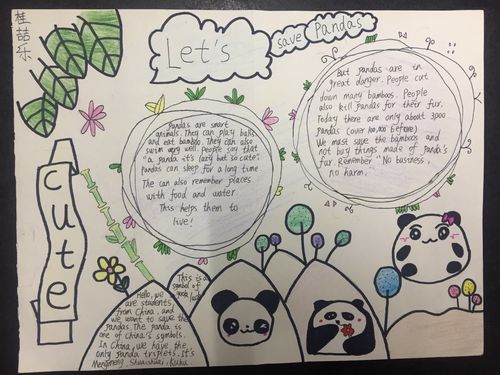 桂喆乐
Let's
save Pandas
cute
Pandas are smart
animals. They can play balls
and eat bamboo. They can also
swim very well. People say that
"a panda it's lazy but so cute".
Pandas can sleep for a long time
The can also remember places
with food and water
This helps them to
live!
But pandas are in
great danger. People cut
down many bamboos. People
also kill pandas for their fur.
Today there are only about 3000
Pandas (over 100,000 before)
We must save the bamboos and
not buy things made of panda's
fur. Remember "No business,
no harm."
This is a
symbol of
good luck
Hello, we
are students
from China, and
we want to save the
pandas. The panda is
one of China's symbols.
In China, we have the
only panda triplets. It's
Mengmeng, Shuaishuai, Kuku